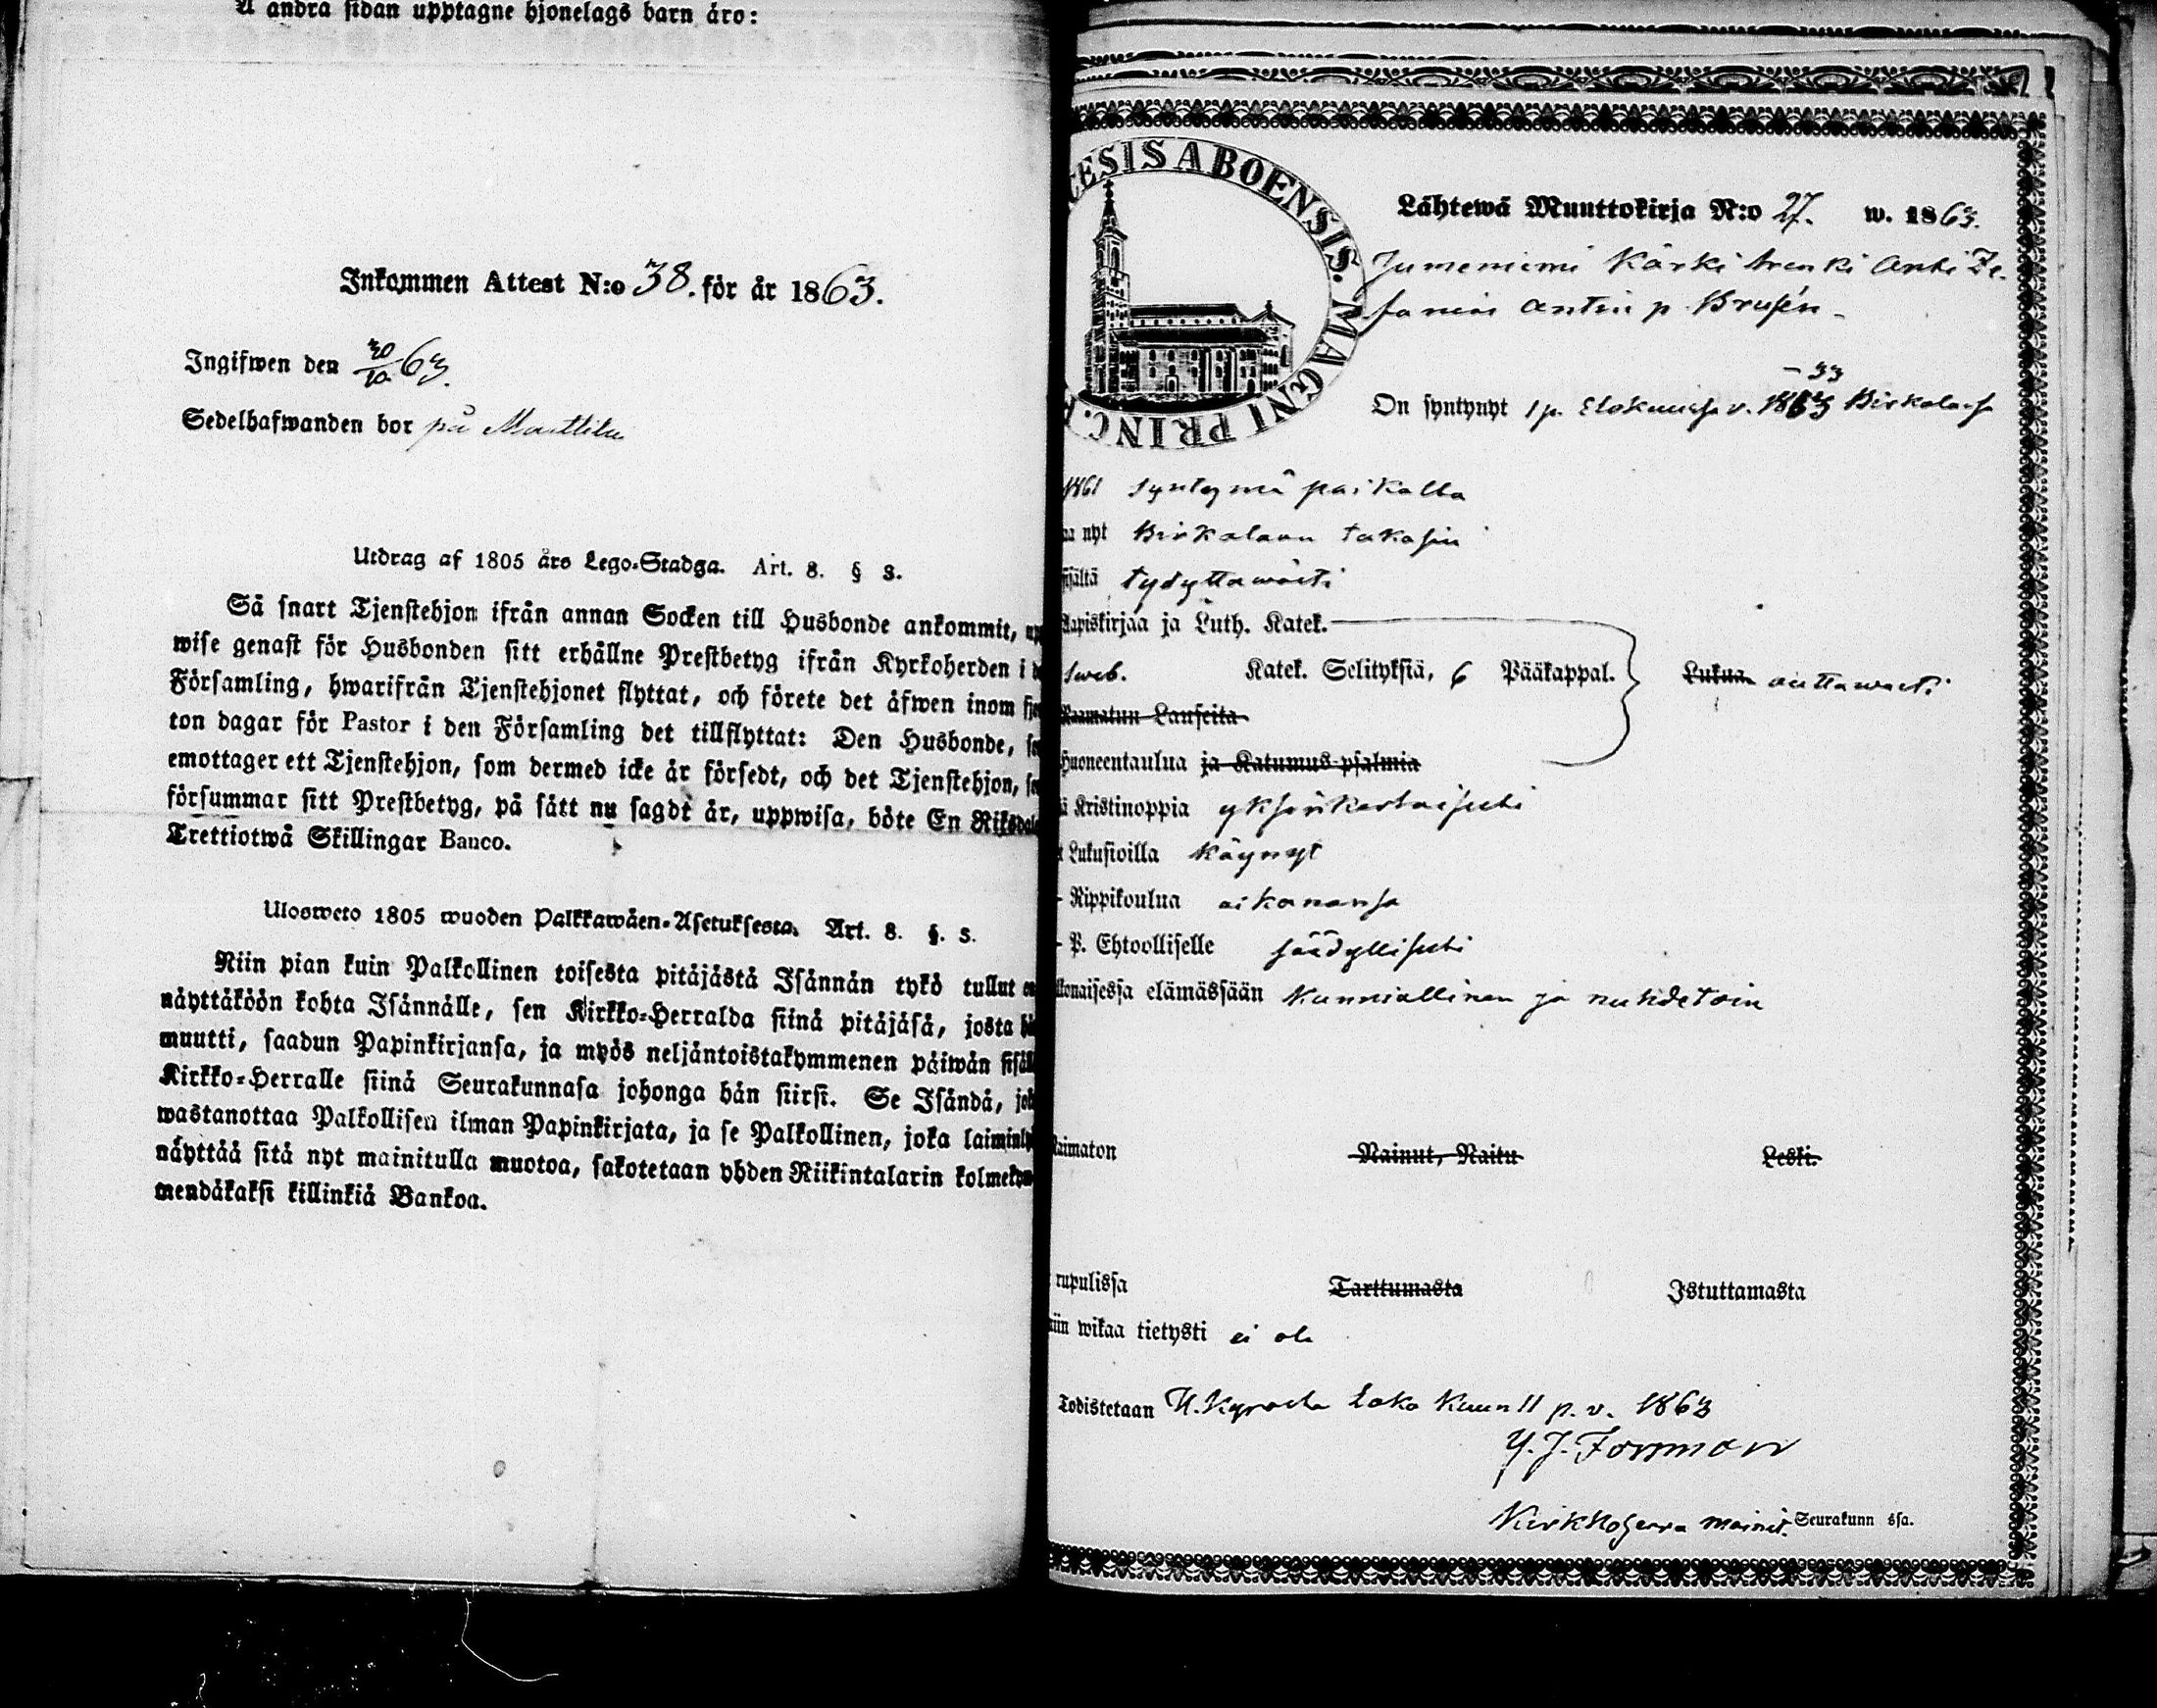 Å andra sidan upptagne hjonelags barn äro:
Inkommen Attest N:o 38. för år 1863.
Ingifwen den 30/10 63.
Sedelhafwanden bor på Mattila
Utdrag af 1805 års Lego-Stadga. Art. 8. § 3.
Så snart Tjenstehjon ifrån annan Socken till Husbonde ankommit, upp
wise genast för Husbonden sitt erhållne Prestbetyg ifrån Kyrkoherden i d
Församling, hwarifrån Tjenstehjonet flyttat, och förete det äfwen inom fje
ton dagar för Pastor i den Församling det tillflyttat: Den Husbonde, so
emottager ett Tjenstehjon, som dermed icke är försedt, och det Tjenstehjon, so
försummar sitt Prestbetyg, på sätt nu sagdt är, uppwisa, böte En Riksdale
Trettiotwå Skillingar Banco.
Ulosweto 1805 wuoden Palkkawäen-Asetuksesta. Art. 8. §. 3.
Niin pian kuin Palkollinen toisesta pitäjästä Isännän tykö tullut on
näyttäköön kohta Isännälle, sen Kirkko-Herralda siinä pitäjäsä, josta hä
muutti, saadun Papinkirjansa, ja myös neljäntoistakymmenen päiwän sisäl
Kirkko-Herralle siinä Seurakunnasa johonga hän siirsi. Se Isändä, jok
wastanottaa Palkollisen ilman Papinkirjata, ja se Palkollinen, joka laiminly
näyttää sitä nyt mainitulla muotoa, sakotetaan yhden Riikintalarin kolmekym
mendäkaksi killinkiä Bankoa.
CESIS ABOENSIS. MAGNI PRINC. F
Lähtewä Muuttokirja N:o 27. w. 1863.
Jumeniemi Kärki trenki Anti Ze-
fanias Antin p. Brusén
– 33
On syntynyt 1 p. Elokuussa v. 1863 Birkalassa
1861 syntymä paikalta
aa nyt Birkalaan takasin
sisältä tydyttäwästi
Aapiskirjaa ja Luth. Katek.
Sweb. Katek. Selityksiä, 6 Pääkappal. Lukua auttawasti
Raamatun Lauseita
Huoneentaulua ja Katumus-psalmia
ä Kristinoppia yksinkertaisesti
t Lukusioilla käynyt
- Rippikoulua aikanansa
- P. Ehtoolliselle säädyllisesti
llonaisessa elämässään kunniallinen ja nuhdetoin
Naimaton Nainut, Naitu Leski.
rupulissa Tarttumasta Istuttamasta
iin wikaa tietysti ei ole
Todistetaan H. Kyrösta Loka Kuun 11 p. v. 1863
Y. J. Forsman
Kirkkoherra mainit. Seurakunn ssa.